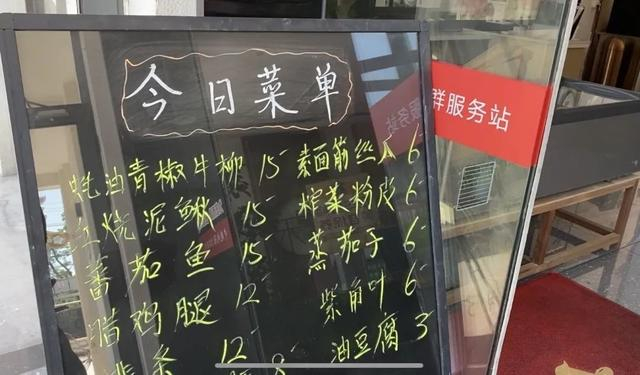 今日菜单
蚝油青椒牛柳 15-
红烧泥鳅 15-
蕃茄鱼 15-
腊鸡腿 12-
条 12-
8-
面筋丝瓜 6-
榨菜粉皮 6-
蒸茄子 6-
紫角叶 6-
油豆腐 3
群服务站